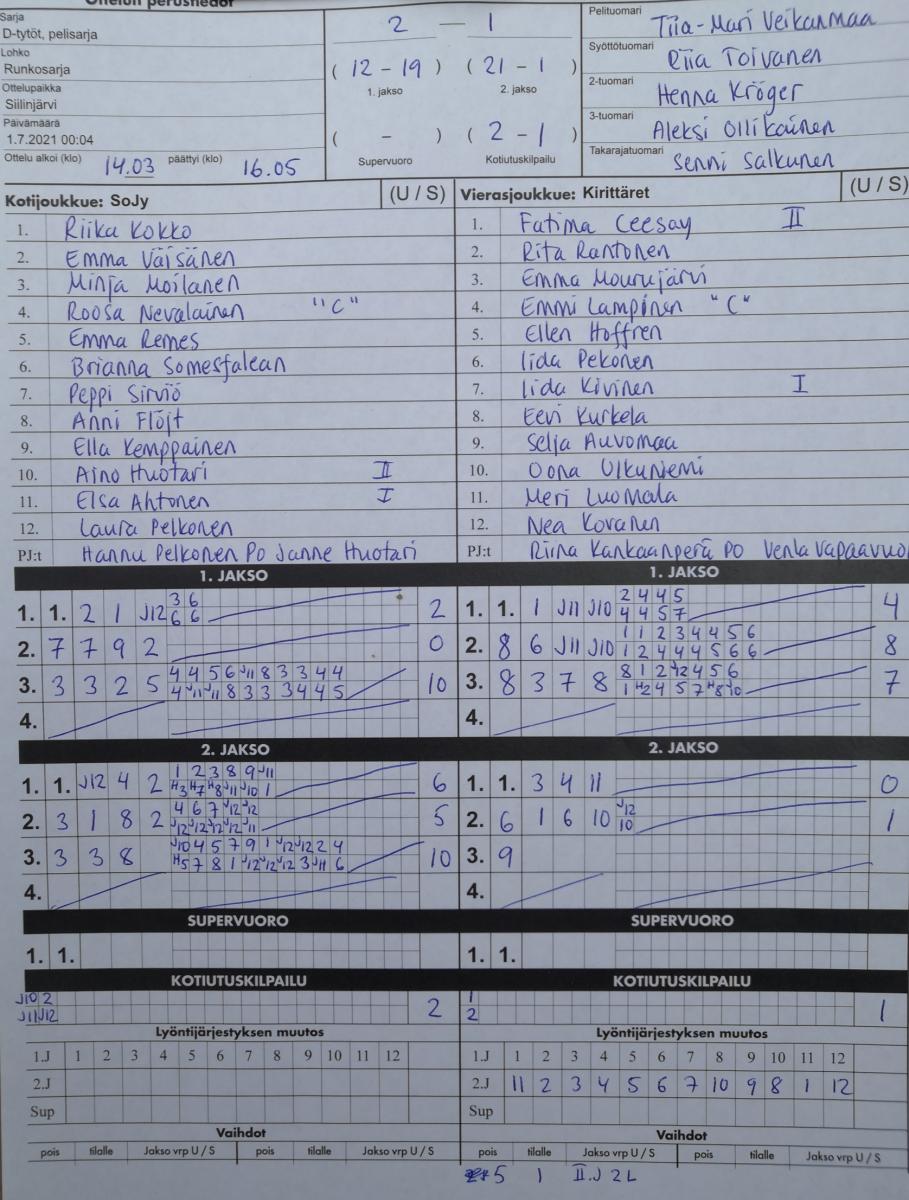 Ottelun perustiedot
Sarja
D-tytöt, pelisarja
Lohko
Runkosarja
Ottelupaikka
Siilinjärvi
Päivämäärä
1.7.2021 00:04
Ottelu alkoi (klo) 14.03 päättyi (klo) 16.05
2 — 1
( 12 - 19 ) ( 21 - 1 )
1. jakso 2. jakso
( - ) ( 2 - 1 )
Supervuoro Kotiutuskilpailu
Pelituomari Tiia-Mari Veikanmaa
Syöttötuomari Riia Toivanen
2-tuomari Henna Kröger
3-tuomari Aleksi Ollikainen
Takarajatuomari Senni Salkunen
Kotijoukkue: SoJy (U / S)
1. Riika Kokko
2. Emma Väisänen
3. Minja Moilanen
4. Roosa Nevalainen "C"
5. Emma Remes
6. Brianna Somesfalean
7. Peppi Sirviö
8. Anni Flöjt
9. Ella Kemppainen
10. Aino Huotari II
11. Elsa Ahtonen I
12. Laura Pelkonen
PJ:t Hannu Pelkonen PO Janne Huotari
Vierasjoukkue: Kirittäret (U / S)
1. Fatima Ceesay II
2. Rita Rantonen
3. Emma Mourujärvi
4. Emmi Lampinen "C"
5. Ellen Hoffren
6. Iida Pekonen
7. Iida Kivinen I
8. Eevi Kurkela
9. Selja Auvomaa
10. Oona Ulkuniemi
11. Meri Luomala
12. Nea Kovanen
PJ:t Riina Kankaanperä PO Venla Vapaavuo
1. JAKSO
1. 1. 2 1 J12 3 6 2
6 6
2. 7 7 9 2 0
3. 3 3 2 5 4 4 5 6 J11 8 3 3 4 4 10
4 J11 J11 8 3 3 3 4 4 5
4.
2. JAKSO
1. 1. J12 4 2 1 2 3 8 9 J11 6
H3 H7 H8 J11 J10 1
2. 3 1 8 2 4 6 7 J12 J12 5
J12 J12 J12 J12 J11
3. 3 3 8 J10 4 5 7 9 1 J12 J12 2 4 10
H5 7 8 1 J12 J12 J12 3 J11 6
4.
SUPERVUORO
1. 1.
KOTIUTUSKILPAILU
J10 2 2
J11 J12
Lyöntijärjestyksen muutos
1.J 1 2 3 4 5 6 7 8 9 10 11 12
2.J
Sup
Vaihdot
pois tilalle Jakso vrp U / S pois tilalle Jakso vrp U / S
1. JAKSO
1. 1. 1 J11 J10 2 4 4 5 4
4 4 5 7
2. 8 6 J11 J10 1 1 2 3 4 4 5 6 8
1 2 4 4 4 5 6 6
3. 8 3 7 8 8 1 2 J12 4 5 6 7
1 H2 4 5 7 H8 J10
4.
2. JAKSO
1. 1. 3 4 11 0
2. 6 1 6 10 J12 1
10
3. 9
4.
SUPERVUORO
1. 1.
KOTIUTUSKILPAILU
1 1
2
Lyöntijärjestyksen muutos
1.J 1 2 3 4 5 6 7 8 9 10 11 12
2.J 11 2 3 4 5 6 7 10 9 8 1 12
Sup
Vaihdot
pois tilalle Jakso vrp U / S pois tilalle Jakso vrp U / S
5 1 II.J 2L